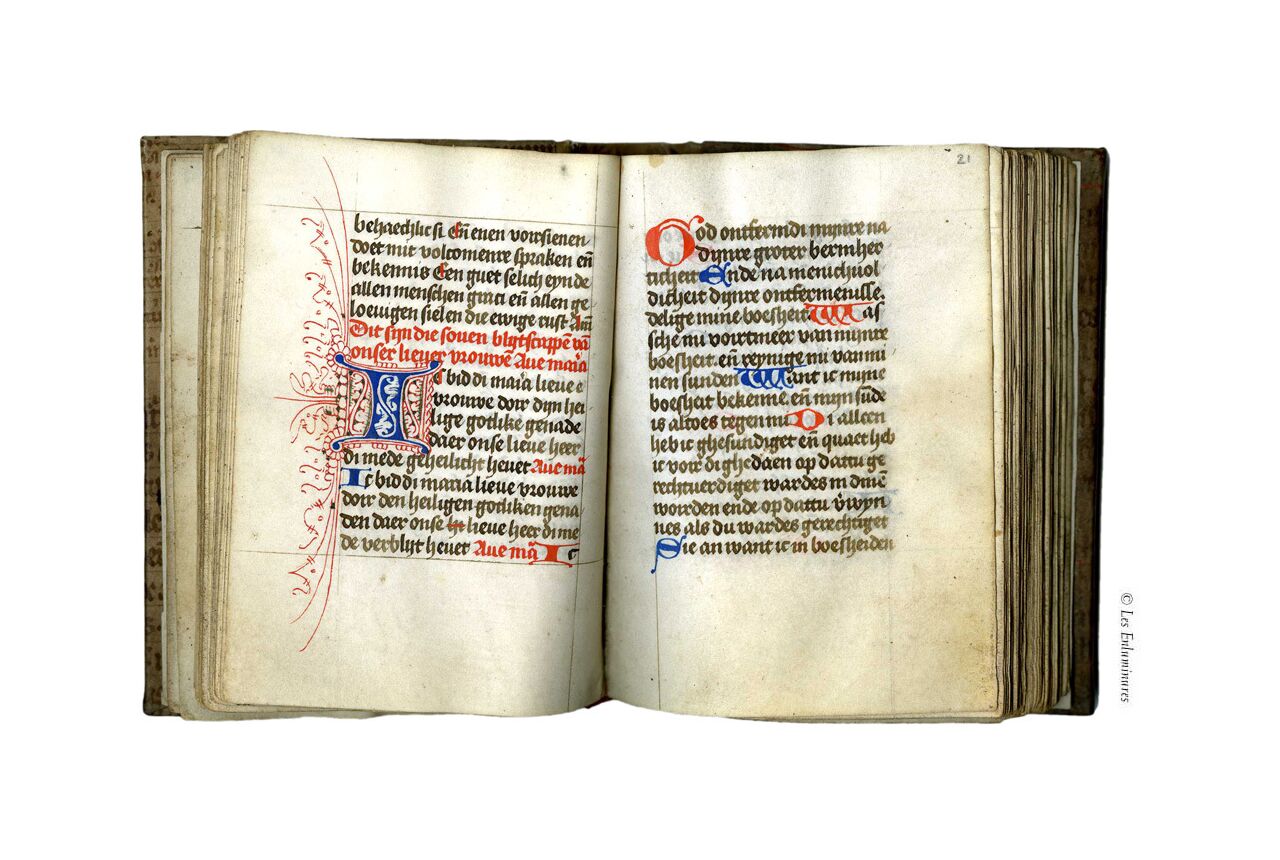 behaechlic si Eñ euen voirsienen
doer mit volcomenre spraken eñ
bekennis Een guet selich eynde
allen menschen graci eñ allen ge
loeuigen sielen die ewige rust Am̄
Dit sijn die souen blijtscappē vā
onser lieuer vrouwē Aue maria
Ic bid di maria lieue
vrouwe doir dijn hei
lige gotlike genade
daer onse lieue heer
di mede geheilicht heuet Aue mā
Ic bid di maria lieue vrouwe
doir den heiligen gotliken gena
den daer onse lieue heer di me
de verblijt heuet Aue mā Ic
21
God ontfermdi mijnre na
dijnre groter bermher
ticheit Ende na menichuol
dicheit dijnre ontfermenisse
delige mine boesheit Was
sche mi voirtmeer van mijnre
boesheit. eñ reynige mi van mi
nen sunden Want ic mijne
boesheit bekenne. eñ mijn sūde
is altoes tegen mi Di alleen
heb ic ghesundiget eñ quaet heb
ic voir di ghedaen op dattu ge
rechtuerdiget wardes in dinē
woirden ende op dattu v̄wyn
nes als du wardes gerechtiget
Sie an want ic in boesheiden
© Les Enluminures